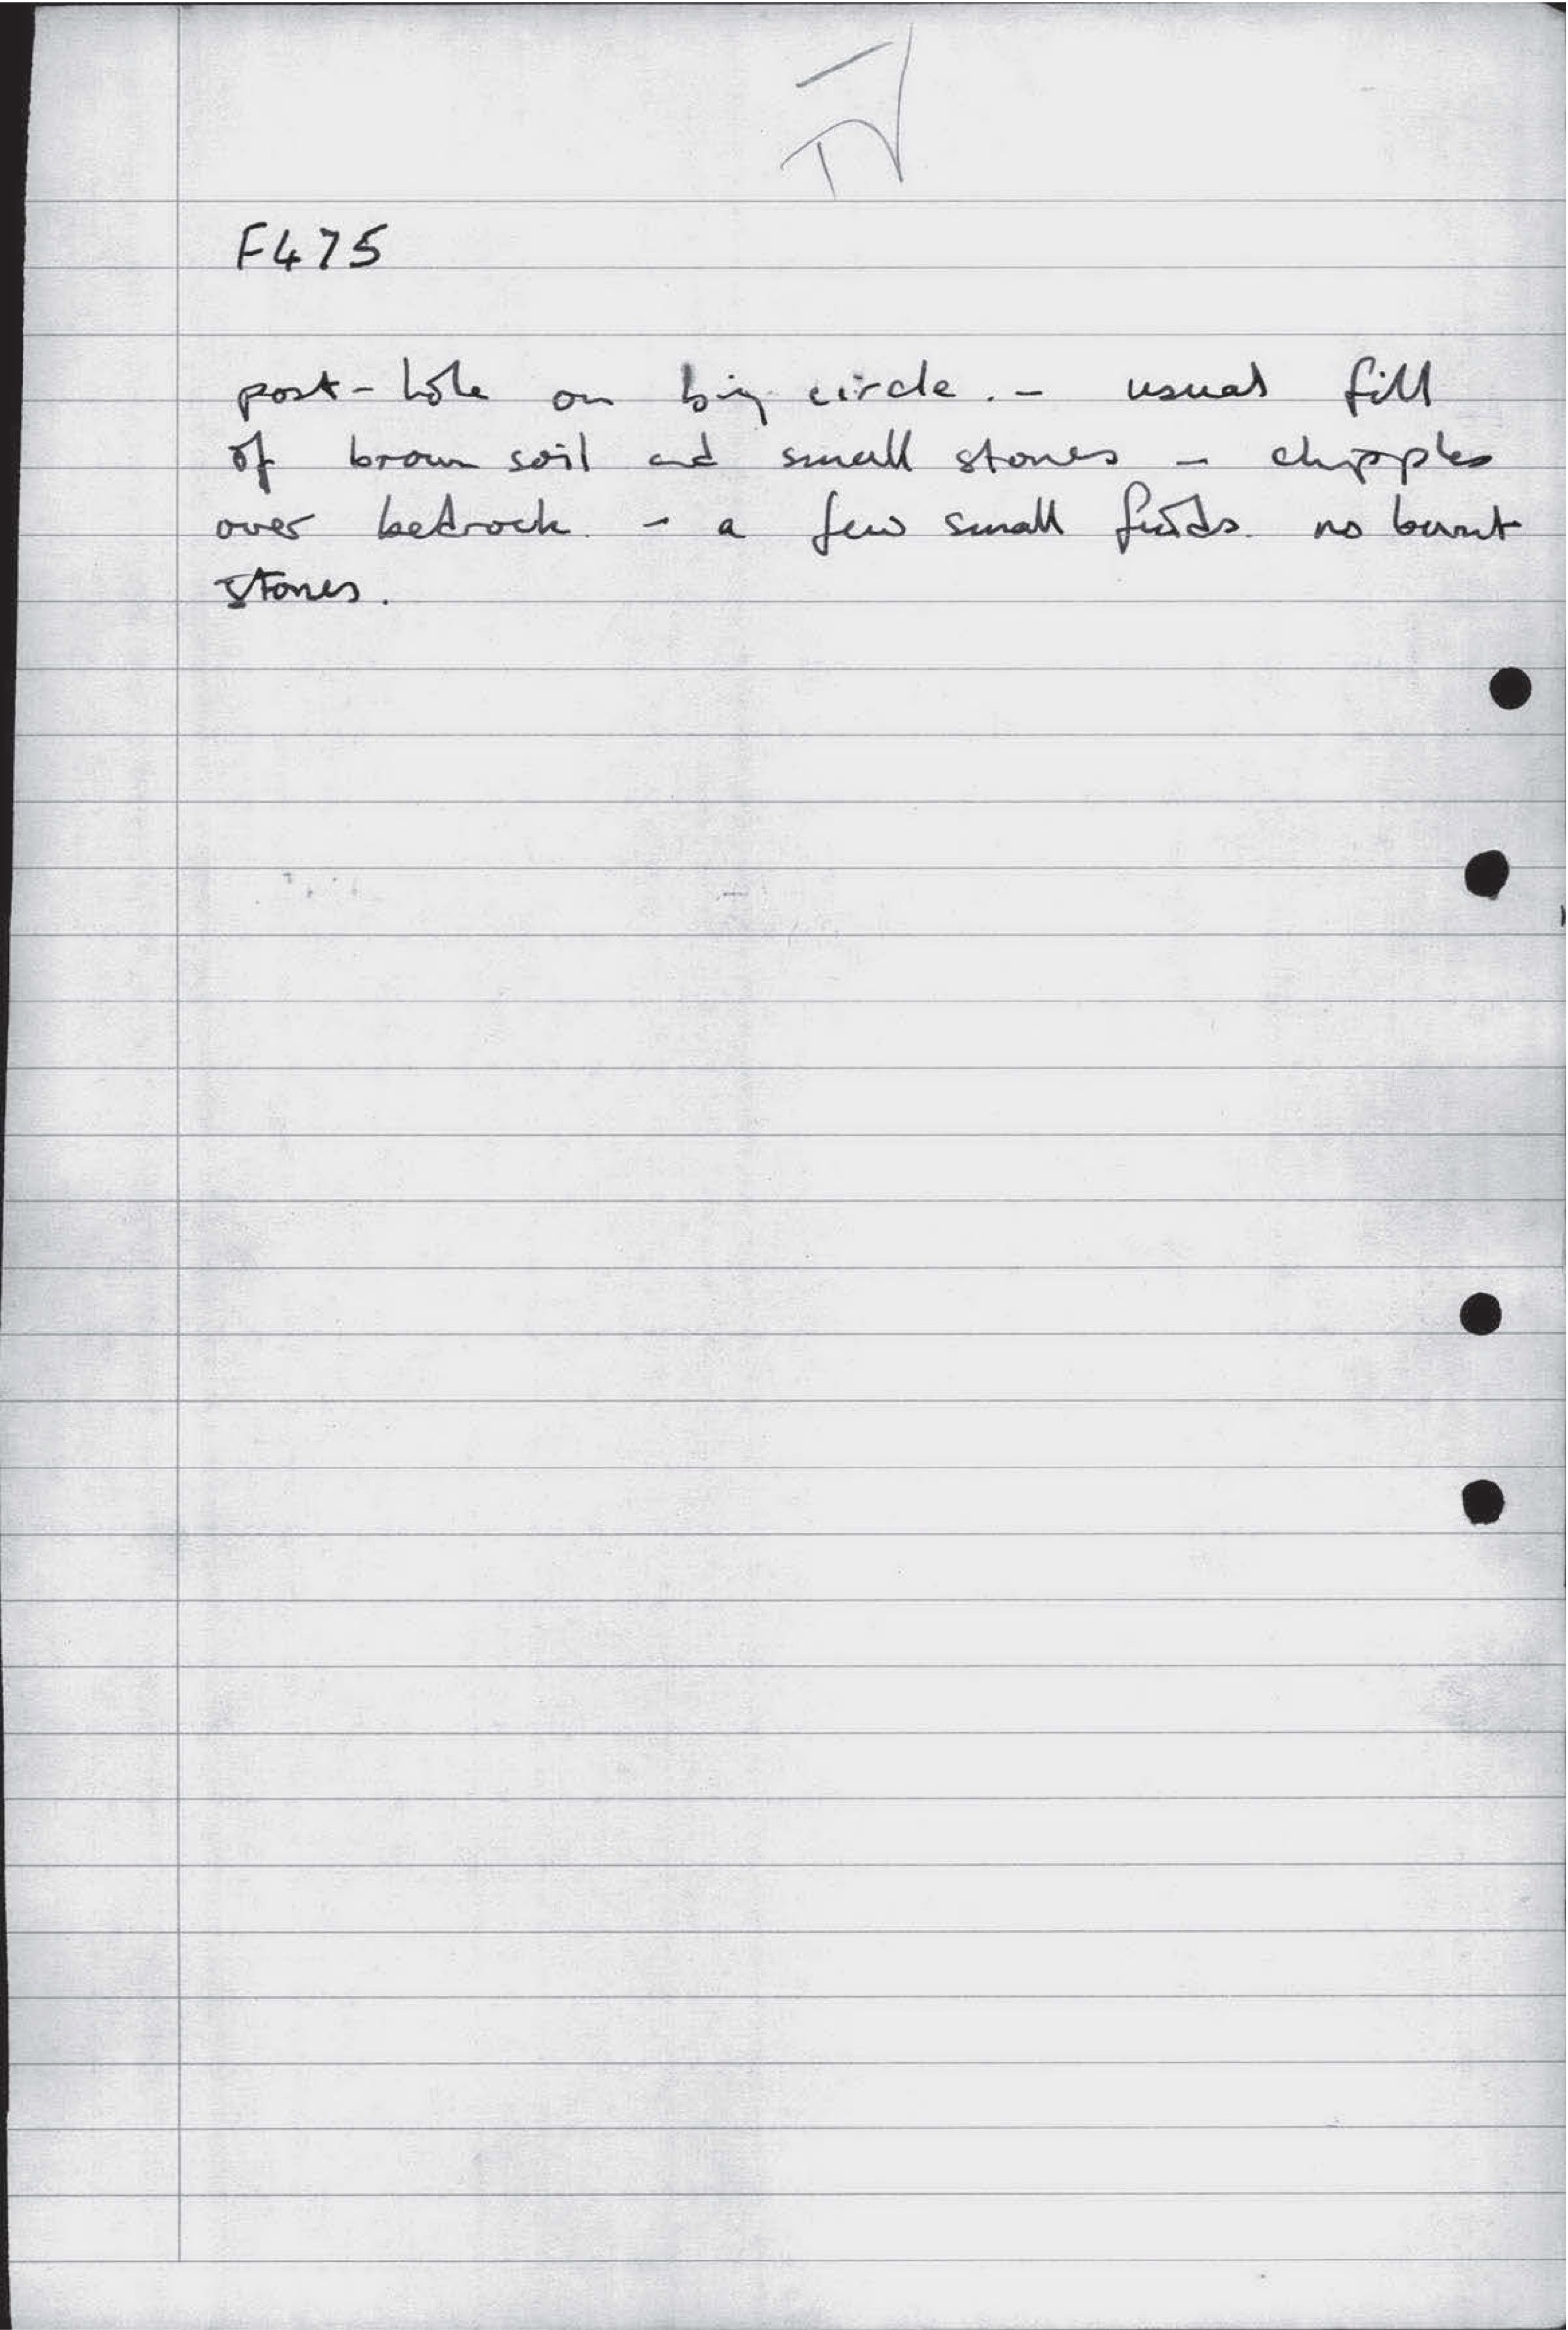 F475
post-hole on big circle. - usual fill
of brown soil and small stones - chipples
over bedrock. - a few small finds. no burnt
stones.